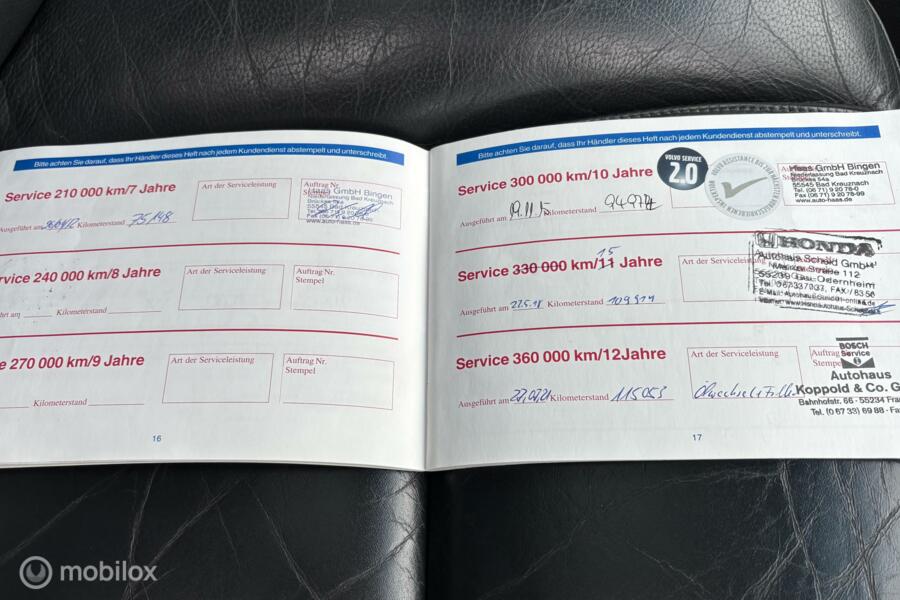 Bitte achten Sie darauf, dass Ihr Händler dieses Heft nach jedem Kundendienst abstempelt und unterschreibt.
Service 210 000 km/7 Jahre
Art der Serviceleistung
Auftrag Nr.
Haas GmbH Bingen
Niederlassung Bad Kreuznach
Brückes 54a
55545 Bad Kreuznach
Tel. (06 71) 9 20 78-0
Fax (06 71) 9 20 78-99
www.auto-haas.de
Ausgeführt am Kilometerstand 75148
rvice 240 000 km/8 Jahre
Art der Serviceleistung
Auftrag Nr.
Stempel
hrt am Kilometerstand
e 270 000 km/9 Jahre
Art der Serviceleistung
Auftrag Nr.
Stempel
Kilometerstand
16
Bitte achten Sie darauf, dass Ihr Händler dieses Heft nach jedem Kundendienst abstempelt und unterschreibt.
Service 300 000 km/10 Jahre
VOLVO SERVICE
2.0
VOLVO ASSISTANCE BIS ZUR NÄCHSTEN
Haas GmbH Bingen
Niederlassung Bad Kreuznach
Brückes 54a
55545 Bad Kreuznach
Tel. (06 71) 9 20 78-0
Fax (06 71) 9 20 78-99
www.auto-haas.de
Ausgeführt am 19.11.15 Kilometerstand 94974
15
Service 330 000 km/11 Jahre
Art der Serviceleistung
HONDA
Autohaus Scheid GmbH
Mainzer Straße 112
55239 Gau-Odernheim
Ausgeführt am 22.5.18 Kilometerstand 109914
Service 360 000 km/12Jahre
Art der Serviceleistung
Auftrag
Stempe
BOSCH
Service
Autohaus
Koppold & Co. G
Bahnhofstr. 66 - 55234 Fra
Tel. (0 67 33) 69 88 - Fa
Ausgeführt am 27.07.21 Kilometerstand 115053 Ölwechsel + Filter
17
mobilox